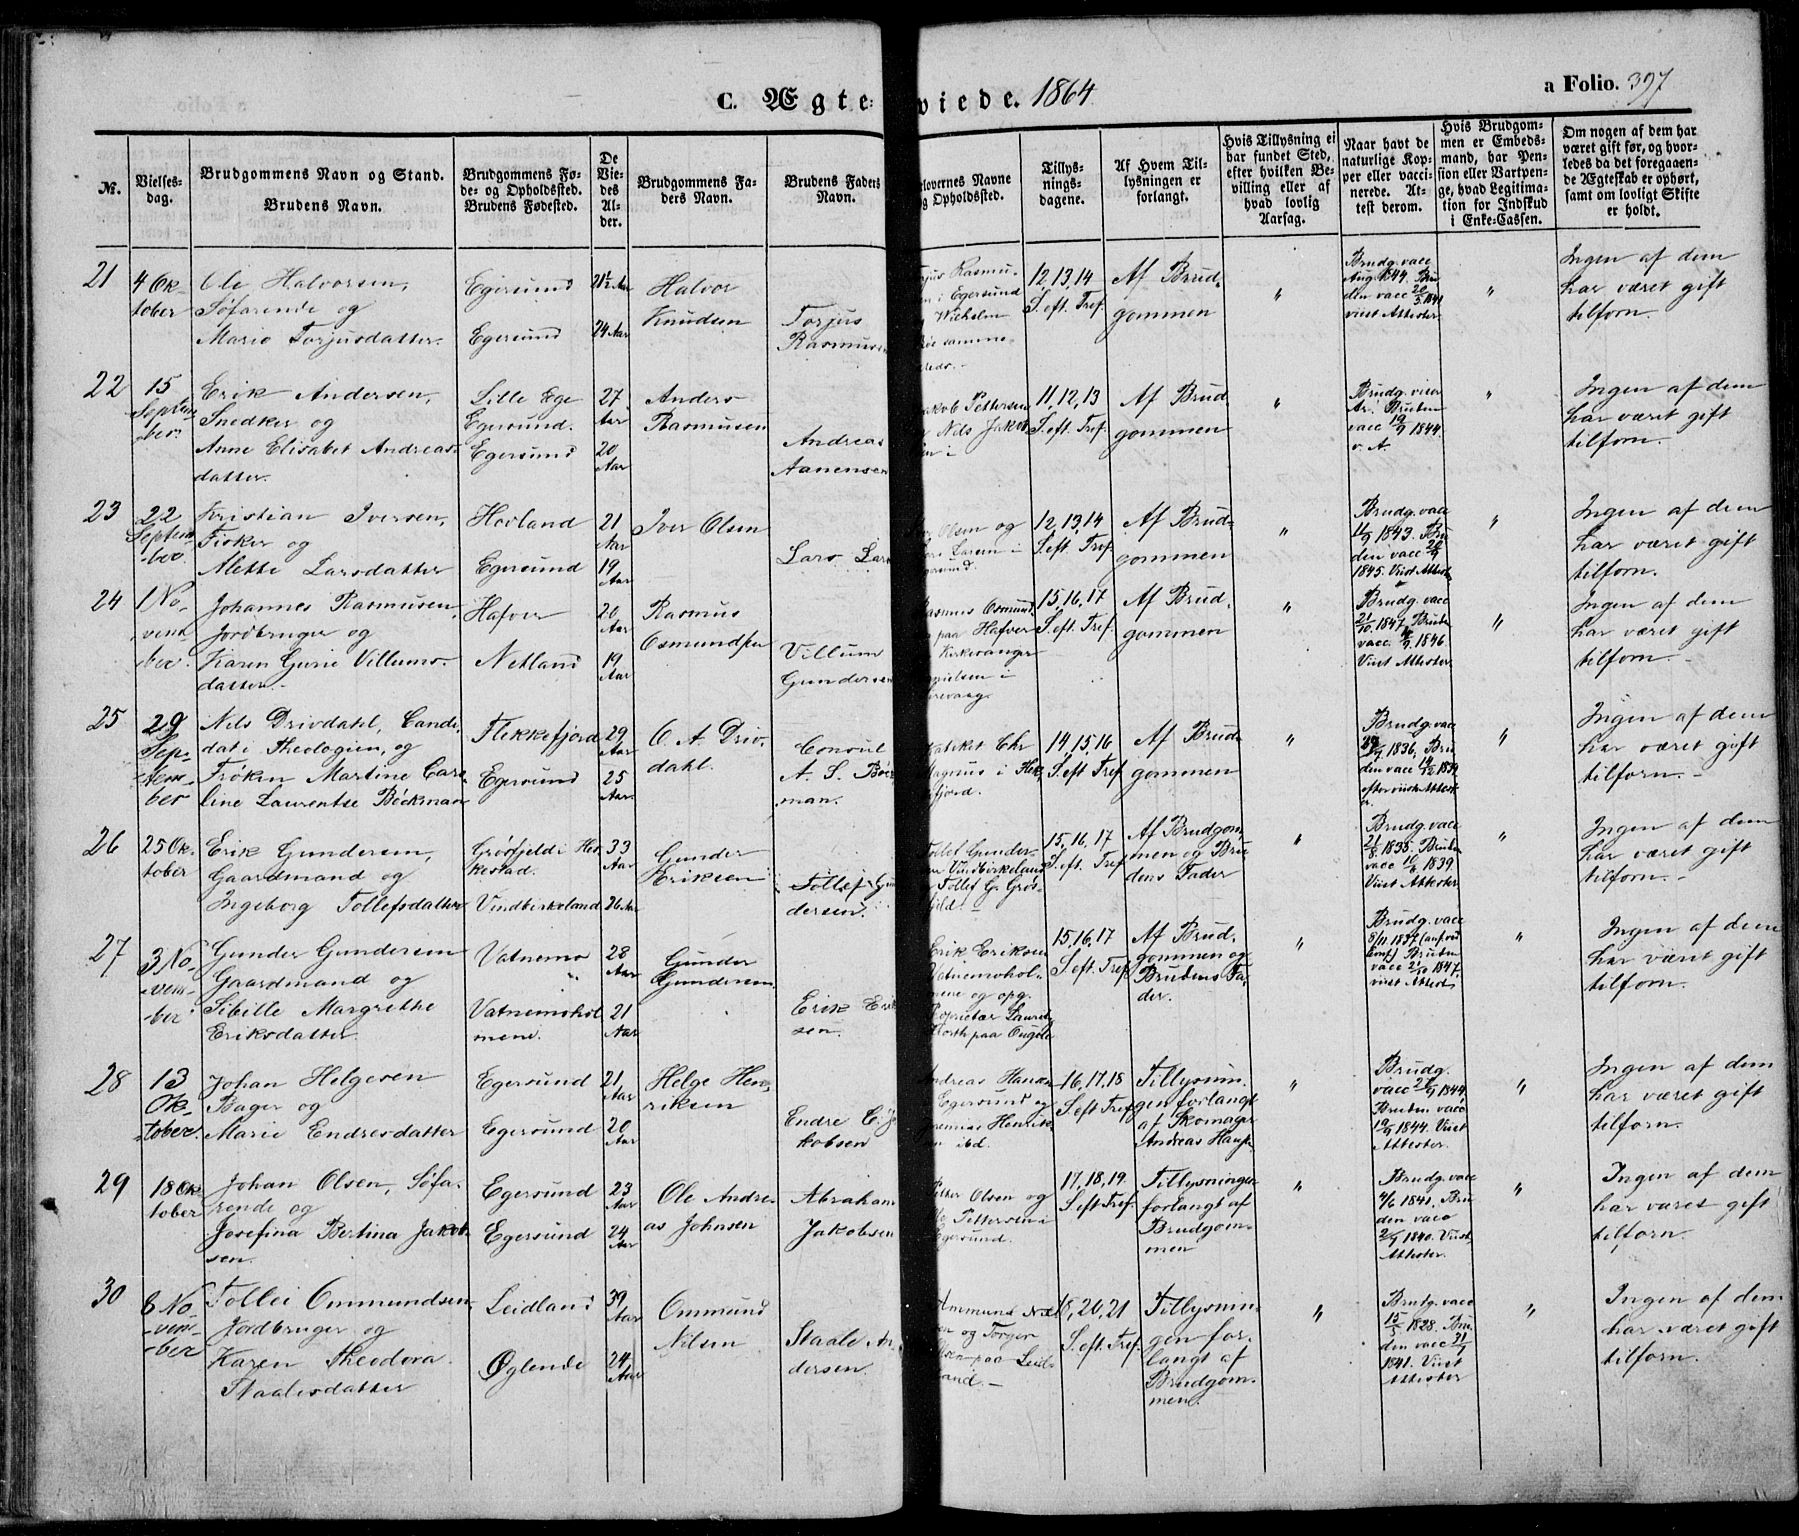 C. Ægteviede. 1864
a Folio. 397
№.
Vielsesdag.
Brudgommens Navn og Stand.
Brudens Navn.
Brudgommens Føde- og Opholdssted.
Brudens Fødested.
De Viedes Alder.
Brudgommens Faders Navn.
Brudens Faders Navn.
lovernes Navne
g Opholdssted.
Tillysningsdagene.
Af Hvem Tillysningen er forlangt.
Hvis Tillysning ei har fundet Sted, efter hvilken Bevilling eller af hvad lovlig Aarsag.
Naar havt de naturlige Kopper eller vaccinerede. Attest derom.
Hvis Brudgommen er Embedsmand, har Pension eller Vartpenge, hvad Legitimation for Indskud i Enke-Cassen.
Om nogen af dem har været gift før, og hvorledes da det foregaaende Ægteskab er ophørt, samt om lovligt Skifte er holdt.
21
4 Oktober
Ole Halvorsen,
Søfarende og
Marie Torjusdatter.
Egersund
Egersund
21½ Aar
24 Aar
Halvor
Knudsen
Torjus
Rasmusen
Rasmu-
i Egersund
Wilhelm
samme-
12, 13, 14
S. eft. Tref.
Af Brud-
gommen
"
Brudg. vacc
Aug. 1844. Bru
den vacc
viist Attester
"
Ingen af dem
har været gift
tilforn.
22
15
Septem
ber.
Erik Andersen,
Snedker og
Anne Elisabet Andreas-
datter.
Lille Ege
Egersund.
Egersund
27
Aar
20
Aar
Anders
Rasmusen
Andreas
Aanensen
akob Pettersen
Nils Jakob
11, 12, 13
S. eft. Tref.
Af Brud
gommen
"
Bruden
vacc 19/9 1844.
v. A.
"
Ingen af dem
har været gift
tilforn.
23
22
Septem
ber.
Kristian Iversen,
Fisker og
Mette Larsdatter
Hovland
Egersund
21
Aar
19
Aar
Iver Olsen
Lars Lar
Olsen og
Larsen i
12, 13, 14
S. eft. Tref.
Af Brud-
gommen
"
Brudg. vacc
1843. Bru
den vacc
1845. Viist Attester
"
Ingen af dem
har været gift
tilforn.
24
1 No-
vem
ber.
Johannes Rasmusen,
Jordbruger og
Karen Gurie Villums-
datter.
Hafver
Netland
20
Aar
19
Aar
Rasmus
Osmundsen
Villum
Gundersen
Rasmus Osmund
paa Hafver
15, 16, 17
S. eft. Tref.
Af Brud-
gommen
"
Brudg. vacc
21/10 1847. Bruden
vacc. 1846.
Viist Attester.
"
Ingen af dem
har været gift
tilforn.
25
29
Sep-
tem-
ber
Nils Drivdahl, Candi-
dat i Theologien, og
Frøken Martine Caro-
line Laurentse Böckman
Flekkefjord
Egersund
29
Aar
25
Aar.
O. A. Driv-
dahl.
Consul
A. S. Böc
man.
Chr
Magnus i Flek
fjord.
14, 15, 16
S. eft Tref
Af Brud-
gommen
"
Brudg. vacc
1836, Bru
den vacc 1839
"
Ingen af dem
har været gift
tilforn.
26
25 Ok-
tober
Erik Gundersen,
Gaardmand og
Ingeborg Tollefsdatter
Grøsfjeld i Hes-
kestad.
Vindbirkeland
33
Aar
26 Aar
Gunder
Eriksen
Tollef Gun
dersen
Tollef Gunder-
Vindbirkeland
Tollef G. Grøs-
15, 16, 17
S. eft. Tref.
Af Brudgom-
men og Bru
dens Fader
"
Brudg. vacc
21/8. 1838. Bruden
vacc 1839.
Viist Attester
"
Ingen af dem
har været gift
tilforn.
27
3 No-
vem-
ber
Gunder Gundersen
Gaardmand og
Sibille Margrethe
Eriksdatter.
Vatnemo
Vatnemohol
mene.
28
Aar
21
Aar
Gunder
Gundersen
Erik Erik
sen.
Erik Eriksen
Vatnemohol-
mene og opg.
Proprietær Laurits
15, 16, 17
S. eft. Tref.
Af Brud-
gommen og
Brudens Fa-
der.
"
Brudg. vacc
8/11 1837
Bruden
vacc 21/10 1847.
viist Attester
"
Ingen af dem
har været gift
tilforn.
28
13
Ok-
tober.
Johan Helgesen
Bager og
Marie Endresdatter
Egersund
Egersund
21
Aar
20
Aar
Helge Hen-
riksen
Endre C. Ja
kobsen
Andreas
Egersund og
Henrik
ibd.
16, 17, 18
S. eft Tref.
Tillysnin-
gen forlangt
af Skomager
Andreas
"
Brudg.
vacc 1844,
Bruden vacc
19/9 1844. Viist
Attester.
"
Ingen af dem
har været gift
tilforn.
29
18 Ok-
tober
Johan Olsen, Søfa-
rende og
Josefina Bertina Jakob-
sen.
Egersund
Egersund
23
Aar
24
Aar
Ole Andre-
as Johnsen
Abraham
Jakobsen
Petter Olsen og
Pettersen i
Egersund.
17, 18, 19.
S. eft Tref.
Tillysningen
forlangt af
Brudgom-
men
"
Brudg. vacc
4/6 1841. Bru
den vacc
1840. Viist
Attester.
"
Ingen af dem
har været gift
tilforn.
30
8 No
vem-
ber
Tollei Ommundsen,
Jordbruger og
Karen Theodora
Staalesdatter
Leidland
Øglende
39
Aar
24
Aar
Ommund
Nilsen
Staale An
dersen.
Ommund
og Torger
paa Leid-
land.
18, 20, 21
S. eft. Tref.
Tillysnin-
gen for-
langt af
Brudgom-
men.
"
Brudg. vacc
1828. Bru
den vacc
1841. Viist
Attester
"
Ingen af dem
har været gift
tilforn.